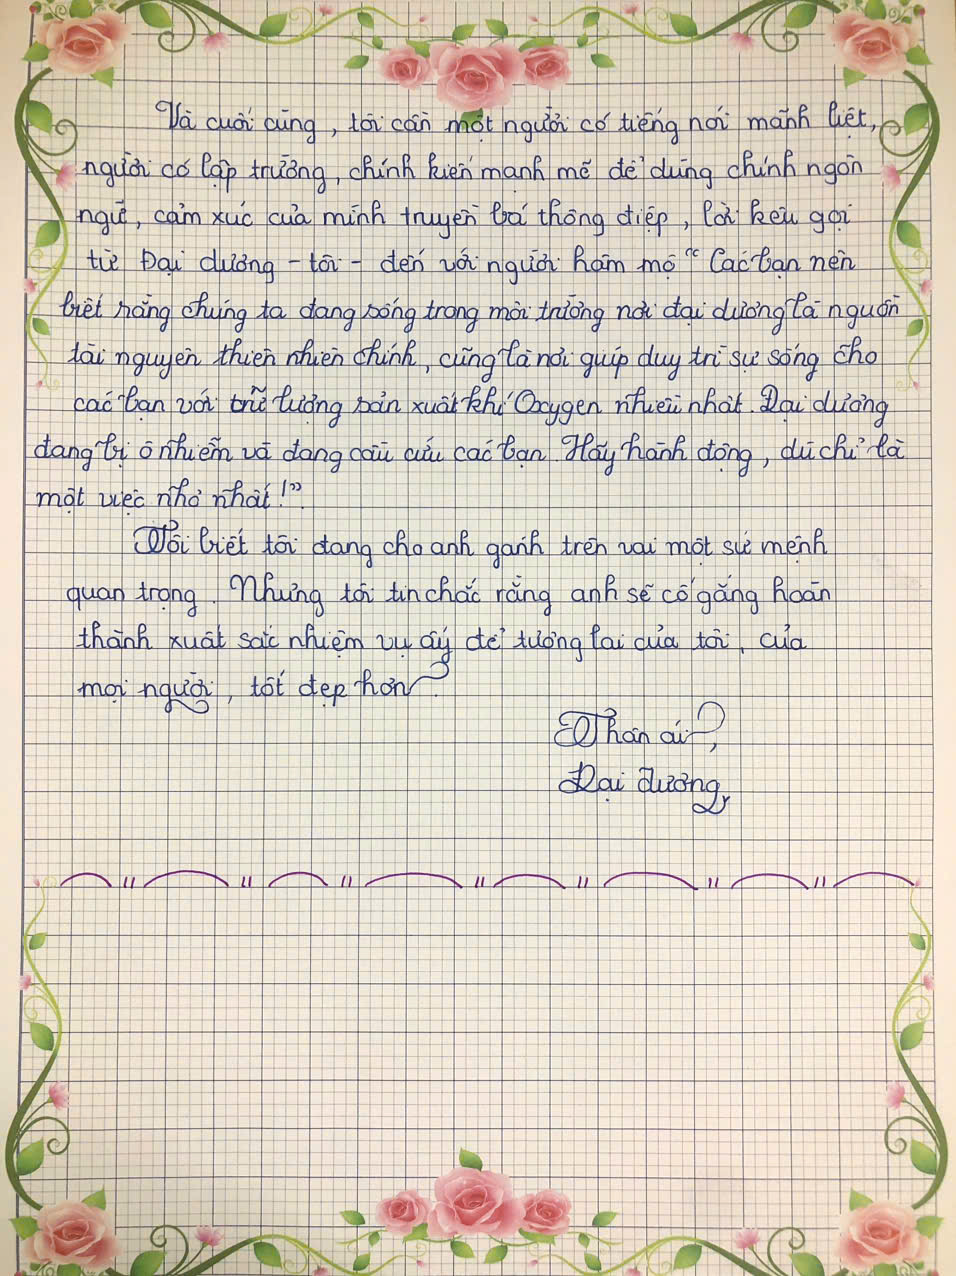 Và cuối cùng, tôi cần một người có tiếng nói mãnh liệt,
người có lập trường, chính kiến mạnh mẽ để dùng chính ngôn
ngữ, cảm xúc của mình truyền bá thông điệp, lời kêu gọi
từ Đại dương - tôi - đến với người hâm mộ "Các bạn nên
biết rằng chúng ta đang sống trong môi trường nơi đại dương là nguồn
tài nguyên thiên nhiên chính, cũng là nơi giúp duy trì sự sống cho
các bạn với trữ lượng sản xuất khí Oxygen nhiều nhất. Đại dương
đang bị ô nhiễm và đang cầu cứu các bạn. Hãy hành động, dù chỉ là
một việc nhỏ nhất!".
Tôi biết tôi đang cho anh gánh trên vai một sứ mệnh
quan trọng. Nhưng tôi tin chắc rằng anh sẽ cố gắng hoàn
thành xuất sắc nhiệm vụ ấy để tương lai của tôi, của
mọi người, tốt đẹp hơn.
Thân ái,
Đại dương